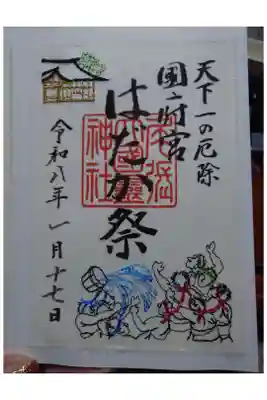 天下一の厄除
國府宮
はだか祭
尾張
大國霊
神社
令和八年 一月十七日